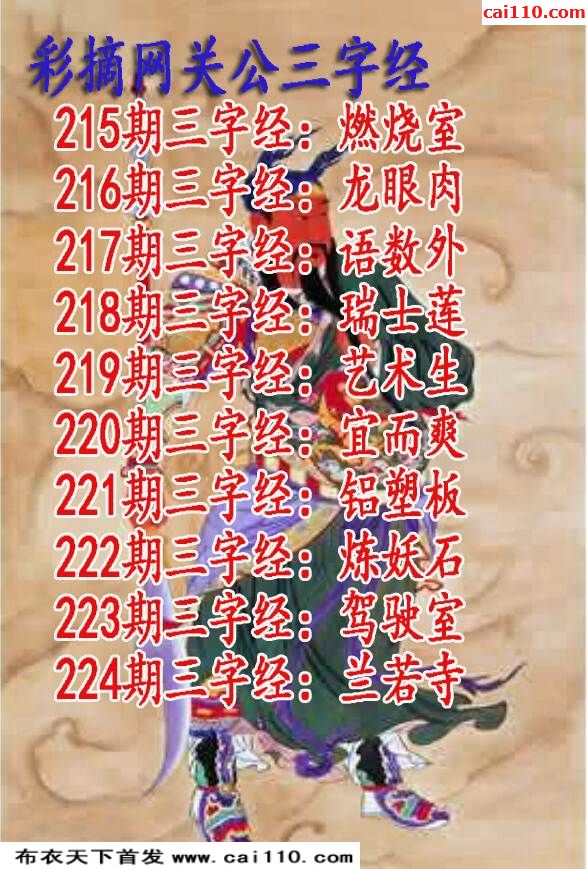 cai110.com
彩摘网关公三字经
215期三字经：燃烧室
216期三字经：龙眼肉
217期三字经：语数外
218期三字经：瑞士莲
219期三字经：艺术生
220期三字经：宜而爽
221期三字经：铝塑板
222期三字经：炼妖石
223期三字经：驾驶室
224期三字经：兰若寺
布衣天下首发 www.cai110.com